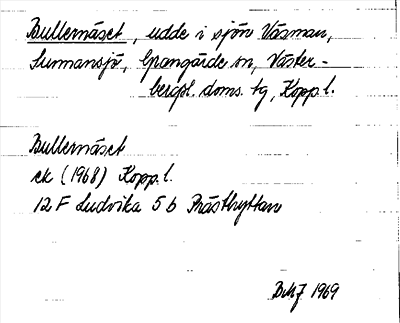 Bullernäset, udde i sjön Väsman,
Sunnansjö, Grangärde sn, Väster-
bergsl. doms. tg, Kopp. l.
Bullernäset
ek (1968) Kopp. l.
12 F Ludvika 5 b Prästhyttan
1969